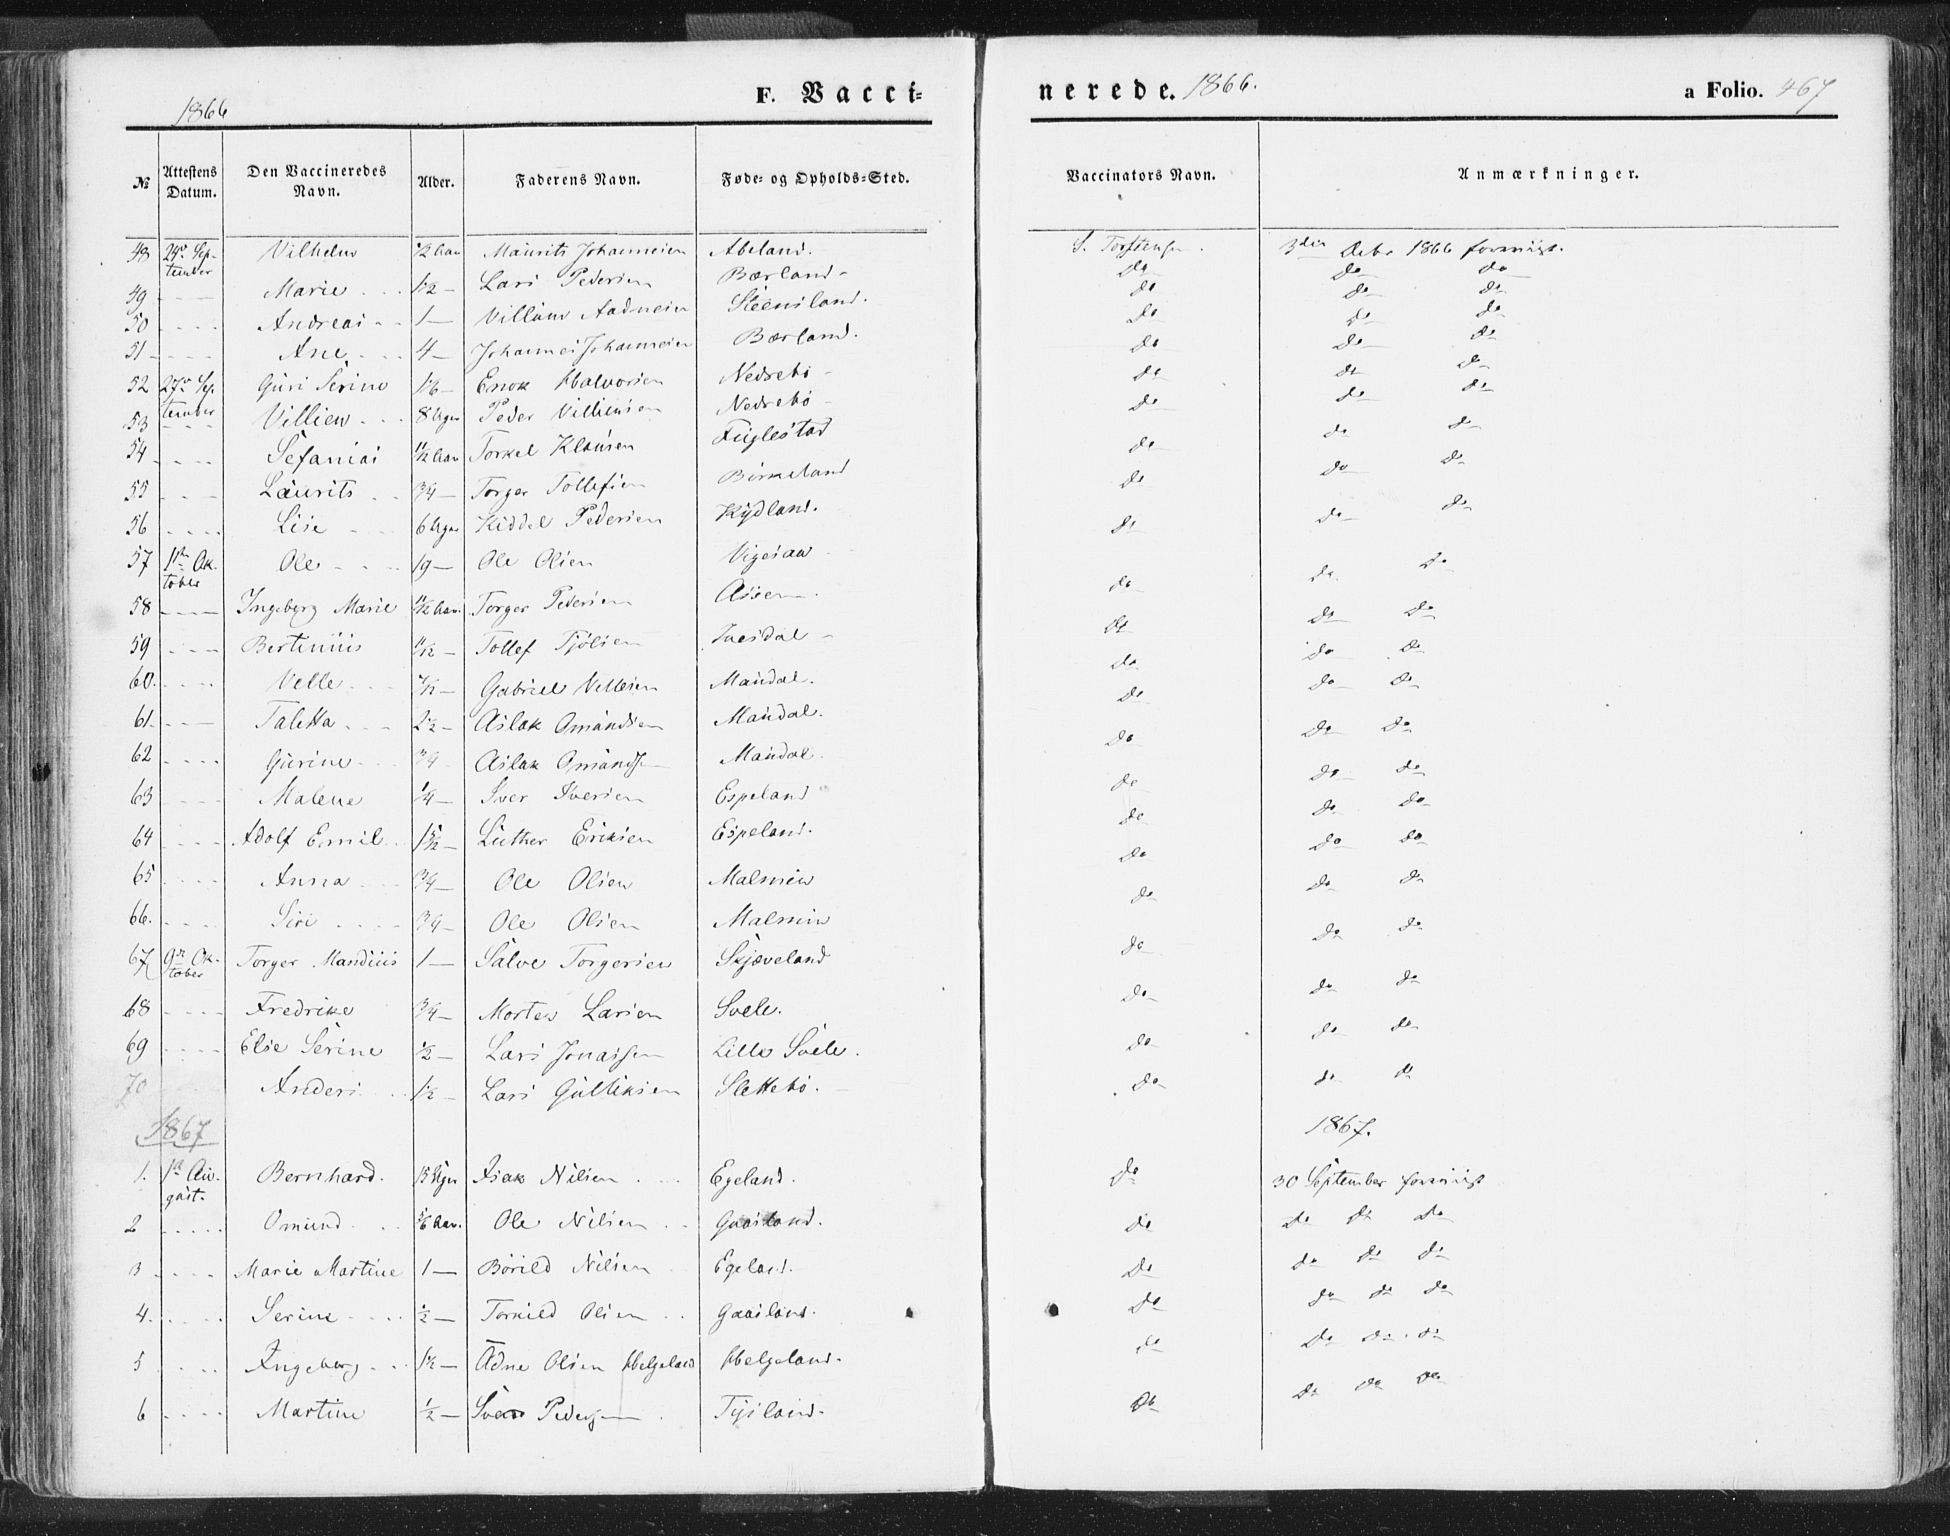 1866
F. Vacci-
nerede. 1866.
a Folio. 467
№ Attestens Datum. Den Vaccineredes Navn. Alder. Faderens Navn. Føde- og Opholds-Sted. Vaccinators Navn. Anmærkninger.
24de Sep- Vilhelm 1/2 Aar Maurits Johannesen Abeland. 1866
tember
49 Marie 1 1/2 Lars Pedersen Bærland do do do
50 Andreas 1 Steensland. do do do
51 Ane 4 Johannes Johannesen Bærland. do do do
52 27de Sep- Guri Serine Enok Halvorsen Nedrebö do do do
tember
53 Villien 8 Uger Peder Villiensen Nedrebö do do do
54 Sefanias Torkel Klausen Fuglestad do do do
55 Laurits 3/4 Torger Tollefsen Birkeland do do do
56 Lise 6 Uger Kiddel Pedersen Kydland. do do do
57 1ste Ok- Ole 19 Ole Olsen Vigesaa do do do
tober
58 Ingeborg Marie Torger Pedersen Aasen do do do
59 Bertinius Tollef Tjölsen Ivesdal do do do
60. Velle Gabriel Vellesen Maudal. do do do
61. Taletta 2 1/2 Aslak Omundsen Maudal. do do do
62 Gurine 3/4 Aslak Omundsen Maudal. do do do
63 Malene 1/4 Iver Iversen Espeland do do do
64 Adolf Emil Luther Eriksen Espeland. do do do
65 Anna 3/4 Ole Olsen Malmin do do do
66. Siri 3/4 Ole Olsen Malmin do do do
67 9de Ok- Torger Mandius 1 Salve Torgersen Skjæveland do do do
tober
68 Fredrike 3/4 Morten Larsen Svele. do do do
69 Else Serine 1/2 Lars Jonassen Lille Svele. do do do
70 Anders 1 1/2 Lars Gulliksen Slettebö. do do do
1867 1867.
1. 1ste Au- Bernhard. Isak Nilsen Egeland. do 30 September forevist
gust.
2 Omund Ole Nilsen Gaasland. do do do do
3 Marie Martine 1 Börild Nilsen Egeland. do do do do
4. Serine 1/2 Torkild Olsen Gaasland. do do do do
5 Ingeborg 1 1/2 Adne Olsen Helgeland Helgeland. do do do do
6 Martine 1/2 Pedersen Tjisland. do do do do